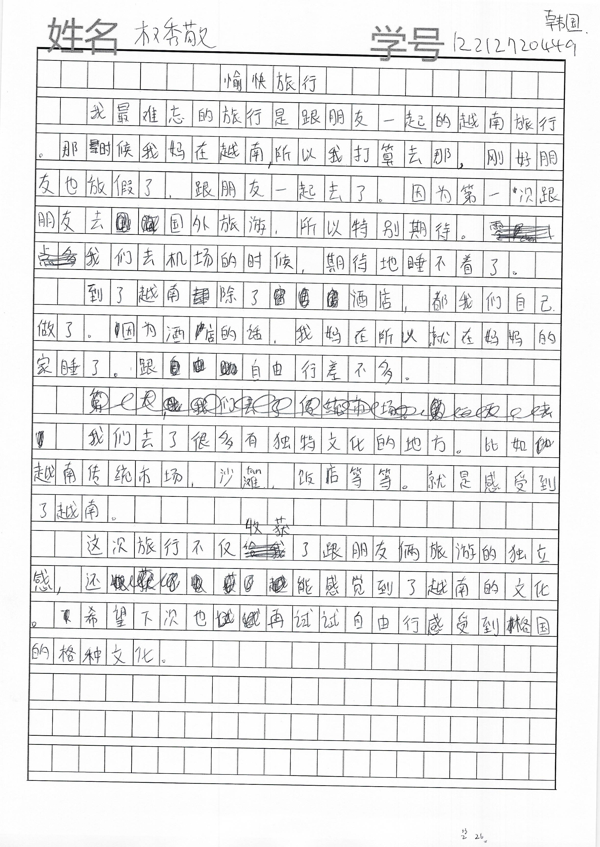 韩国
姓名 权秀敬 学号 12212720449
愉快旅行
我最难志的旅行是跟朋友一起的越南旅行
。那时候我妈在越南,所以我打算去那,刚好朋
友也放假了,跟朋友一起去了。因为第一次跟
朋友去国外旅游,所以特别期待。
我们去机场的时候,期待地睡不着了。
到了越南除了酒店,都我们自己
做了。因为酒店的话,我妈在所以就在妈妈的
家睡了。跟自由行差不多。
我们去了很多有独特文化的地方。比如
越南传统市场,沙滩,饭店等等。就是感受到
了越南。
收获
这次旅行不仅了跟朋友俩旅游的独立
感,还能感觉到了越南的文化
。希望下次也再试试自由行感受到格国
的格种文化。